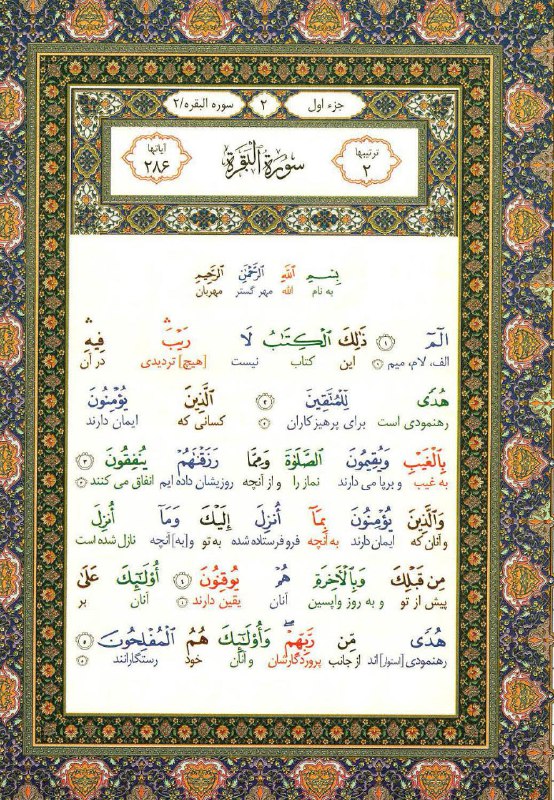 جزء اول ۲ سوره البقره/۲
ترتیبها ۲ سُورَةُ ٱلْبَقَرَة آیاتها ۲۸۶
بِسْمِ ٱللَّهِ ٱلرَّحْمَٰنِ ٱلرَّحِيمِ
به نام الله مهر گستر مهربان
الٓمٓ ۱ ذَٰلِكَ ٱلْكِتَٰبُ لَا رَيْبَ ۛ فِيهِ ۛ
الف، لام، میم ۱ این کتاب نیست [هیچ] تردیدی در آن
هُدًى لِّلْمُتَّقِينَ ۲ ٱلَّذِينَ يُؤْمِنُونَ
رهنمودی است برای پرهیزکاران ۲ کسانی که ایمان دارند
بِٱلْغَيْبِ وَيُقِيمُونَ ٱلصَّلَوٰةَ وَمِمَّا رَزَقْنَٰهُمْ يُنفِقُونَ ۳
به غیب و برپا می دارند نماز را و از آنچه روزیشان داده ایم انفاق می کنند ۳
وَٱلَّذِينَ يُؤْمِنُونَ بِمَآ أُنزِلَ إِلَيْكَ وَمَآ أُنزِلَ
و آنان که ایمان دارند به آنچه فرو فرستاده شده به تو و [به] آنچه نازل شده است
مِن قَبْلِكَ وَبِٱلْأَخِرَةِ هُمْ يُوقِنُونَ ۴ أُو۟لَٰٓئِكَ عَلَىٰ
پیش از تو و به روز واپسین آنان یقین دارند ۴ آنان بر
هُدًى مِّن رَّبِّهِمْ ۖ وَأُو۟لَٰٓئِكَ هُمُ ٱلْمُفْلِحُونَ ۵
رهنمودی [استوار] اند از جانب پروردگارشان و آنان خود رستگارانند ۵